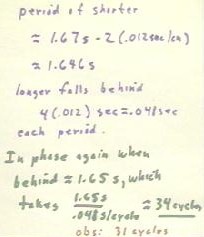 period of shorter
≈ 1.67s - 2(.012sec/cm)
≈ 1.646s
longer falls behind
4(.012) sec ≈ .048sec
each period.
In phase again when
behind ≈ 1.65s, which
takes 1.65s / .048s/cycle ≈ 34 cycles
obs: 31 cycles